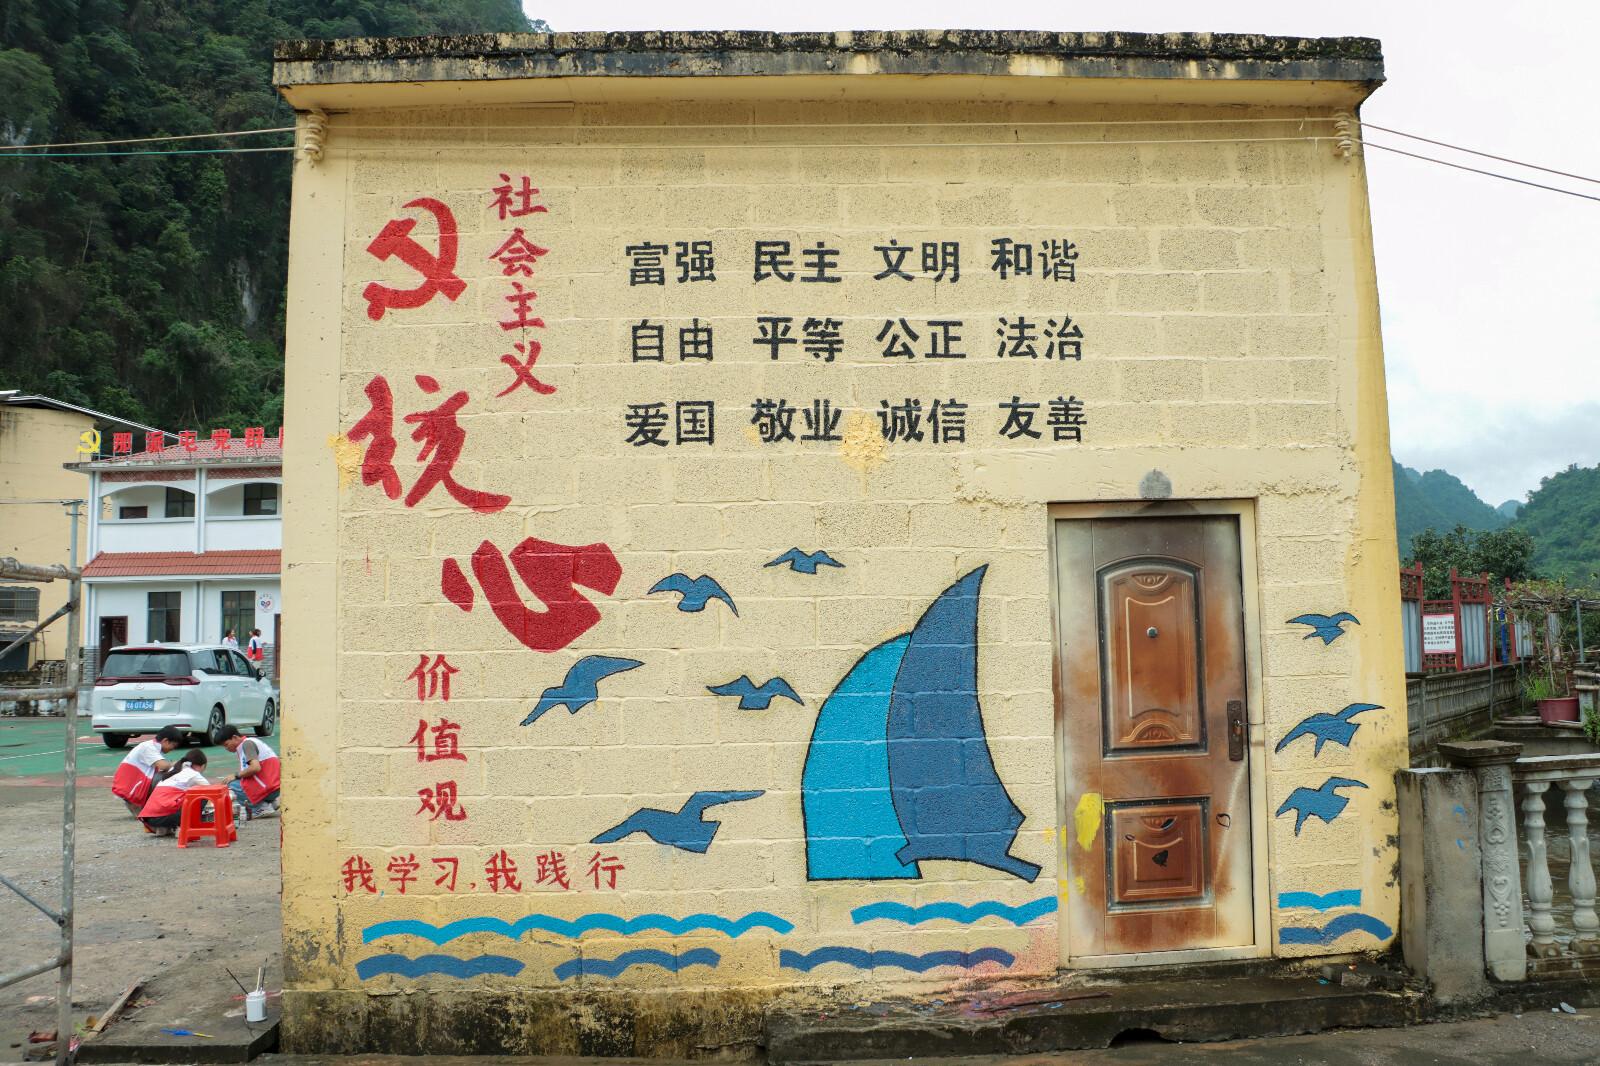 社会主义
核心
价值观
富强 民主 文明 和谐
自由 平等 公正 法治
爱国 敬业 诚信 友善
我学习,我践行
那派屯党群